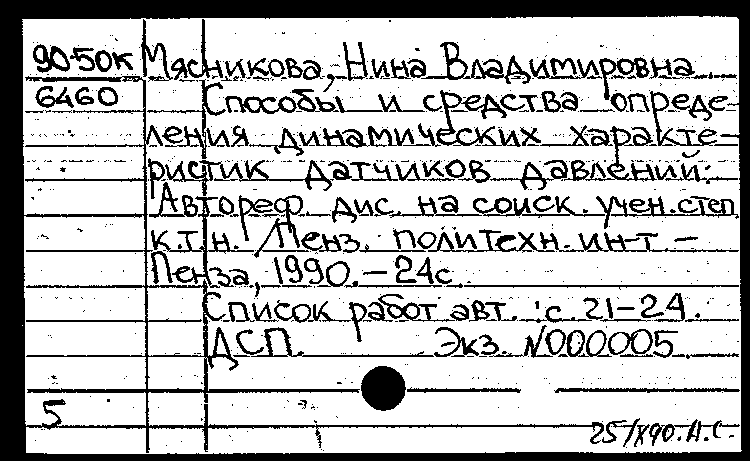 90-50К Мясникова, Нина Владимировна
6460 Способы и средства опреде-
ления динамических характе-
ристик датчиков давлений:
Автореф. дис. на соиск. учен. степ.
к.т.н. /Пенз. политехн. ин-т -
Пенза, 1990. - 24с.
Список работ авт.: с. 21-24.
ДСП. Экз. №000005
5
25/X90. А.С.